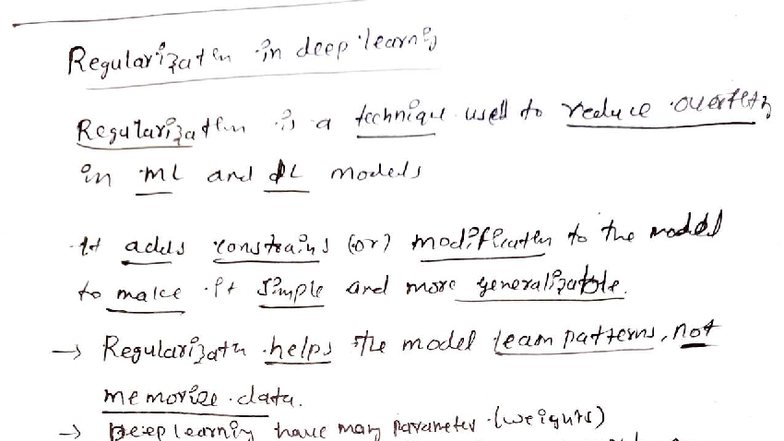 Regularization in deep learning
Regularization is a technique used to reduce overfitting
in ML and DL models
It adds constrains (or) modification to the model
to make it simple and more generalizable.
→ Regularization helps the model learn patterns, not
memorize data.
→ Deep learning have many parameter (weights)